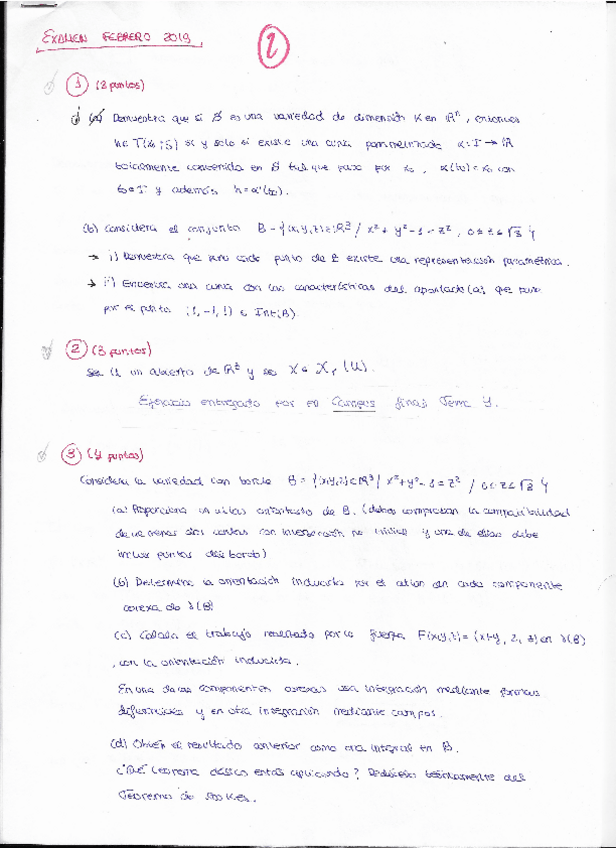 EXAMEN FEBRERO 2019
2
1 (3 puntos)
(a) Demuestra que si S es una variedad de dimensión K en ℝⁿ, entonces
h∈T(x₀;S) si y solo si existe una curva parametrizada α: I → ℝ
totalmente contenida en S tal que pase por x₀, α(t₀)=x₀ con
t₀∈I y además h=α'(t₀).
(b) Considera el conjunto B={(x,y,z)∈ℝ³ / x²+y²-1=z², 0≤z≤√3}
→ i) Demuestra que para cada punto de B existe una representación paramétrica.
→ ii) Encuentra una curva con las características del apartado (a) que pase
por el punto (1,-1,1) ∈ Int(B).
2 (3 puntos)
Sea U un abierto de ℝ³ y sea X∈𝔛r(U).
Ejercicio entregado por el Campus final Tema 4.
3 (4 puntos)
Considera la variedad con borde B={(x,y,z)∈ℝ³/ x²+y²-1=z² / 0≤z≤√3}
(a) Proporciona un atlas orientado de B. (debes comprobar la compatibilidad
de al menos dos cartas con intersección no vacía y una de ellas debe
incluir puntos del borde)
(b) Determina la orientación inducida por el atlas en cada componente
conexa de ∂(B)
(c) Calcula el trabajo realizado por la fuerza F(x,y,z)=(x+y, z, 3) en ∂(B)
, con la orientación inducida.
En una de las componentes conexas usa integración mediante formas
diferenciales y en otra integración mediante campos.
(d) Obtén el resultado anterior como una integral en B.
¿Qué teorema clásico estás aplicando? Dedúcelo del
Teorema de Stokes.